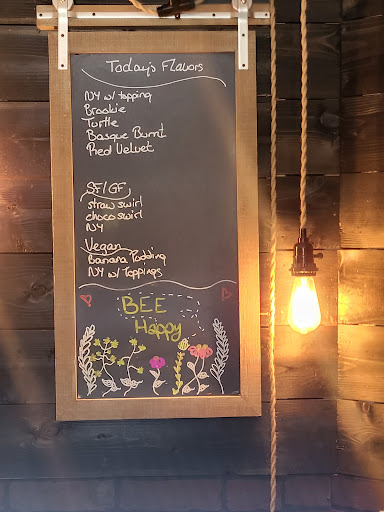 Today's Flavors
NY w/ topping
Brookie
Turtle
Basque Burnt
Red Velvet
SF/GF
straw swirl
choco swirl
NY
Vegan
Banana Pudding
NY w/ Toppings
BEE
Happy